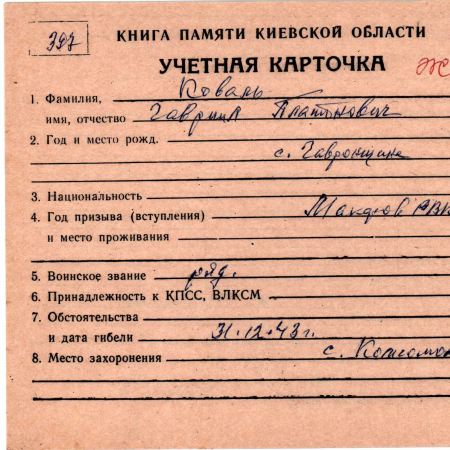 397
КНИГА ПАМЯТИ КИЕВСКОЙ ОБЛАСТИ
УЧЕТНАЯ КАРТОЧКА
1. Фамилия, Коваль
имя, отчество Гавриил Платонович
2. Год и место рожд.
с. Гавронщина
3. Национальность
4. Год призыва (вступления) Макаров РВК
и место проживания
5. Воинское звание ряд.
6. Принадлежность к КПСС, ВЛКСМ
7. Обстоятельства
и дата гибели 31.12.43г.
8. Место захоронения с. Комсомо